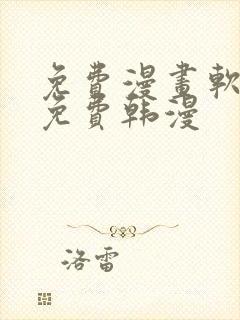 免費漫畫軟
免費韩漫
洛雷